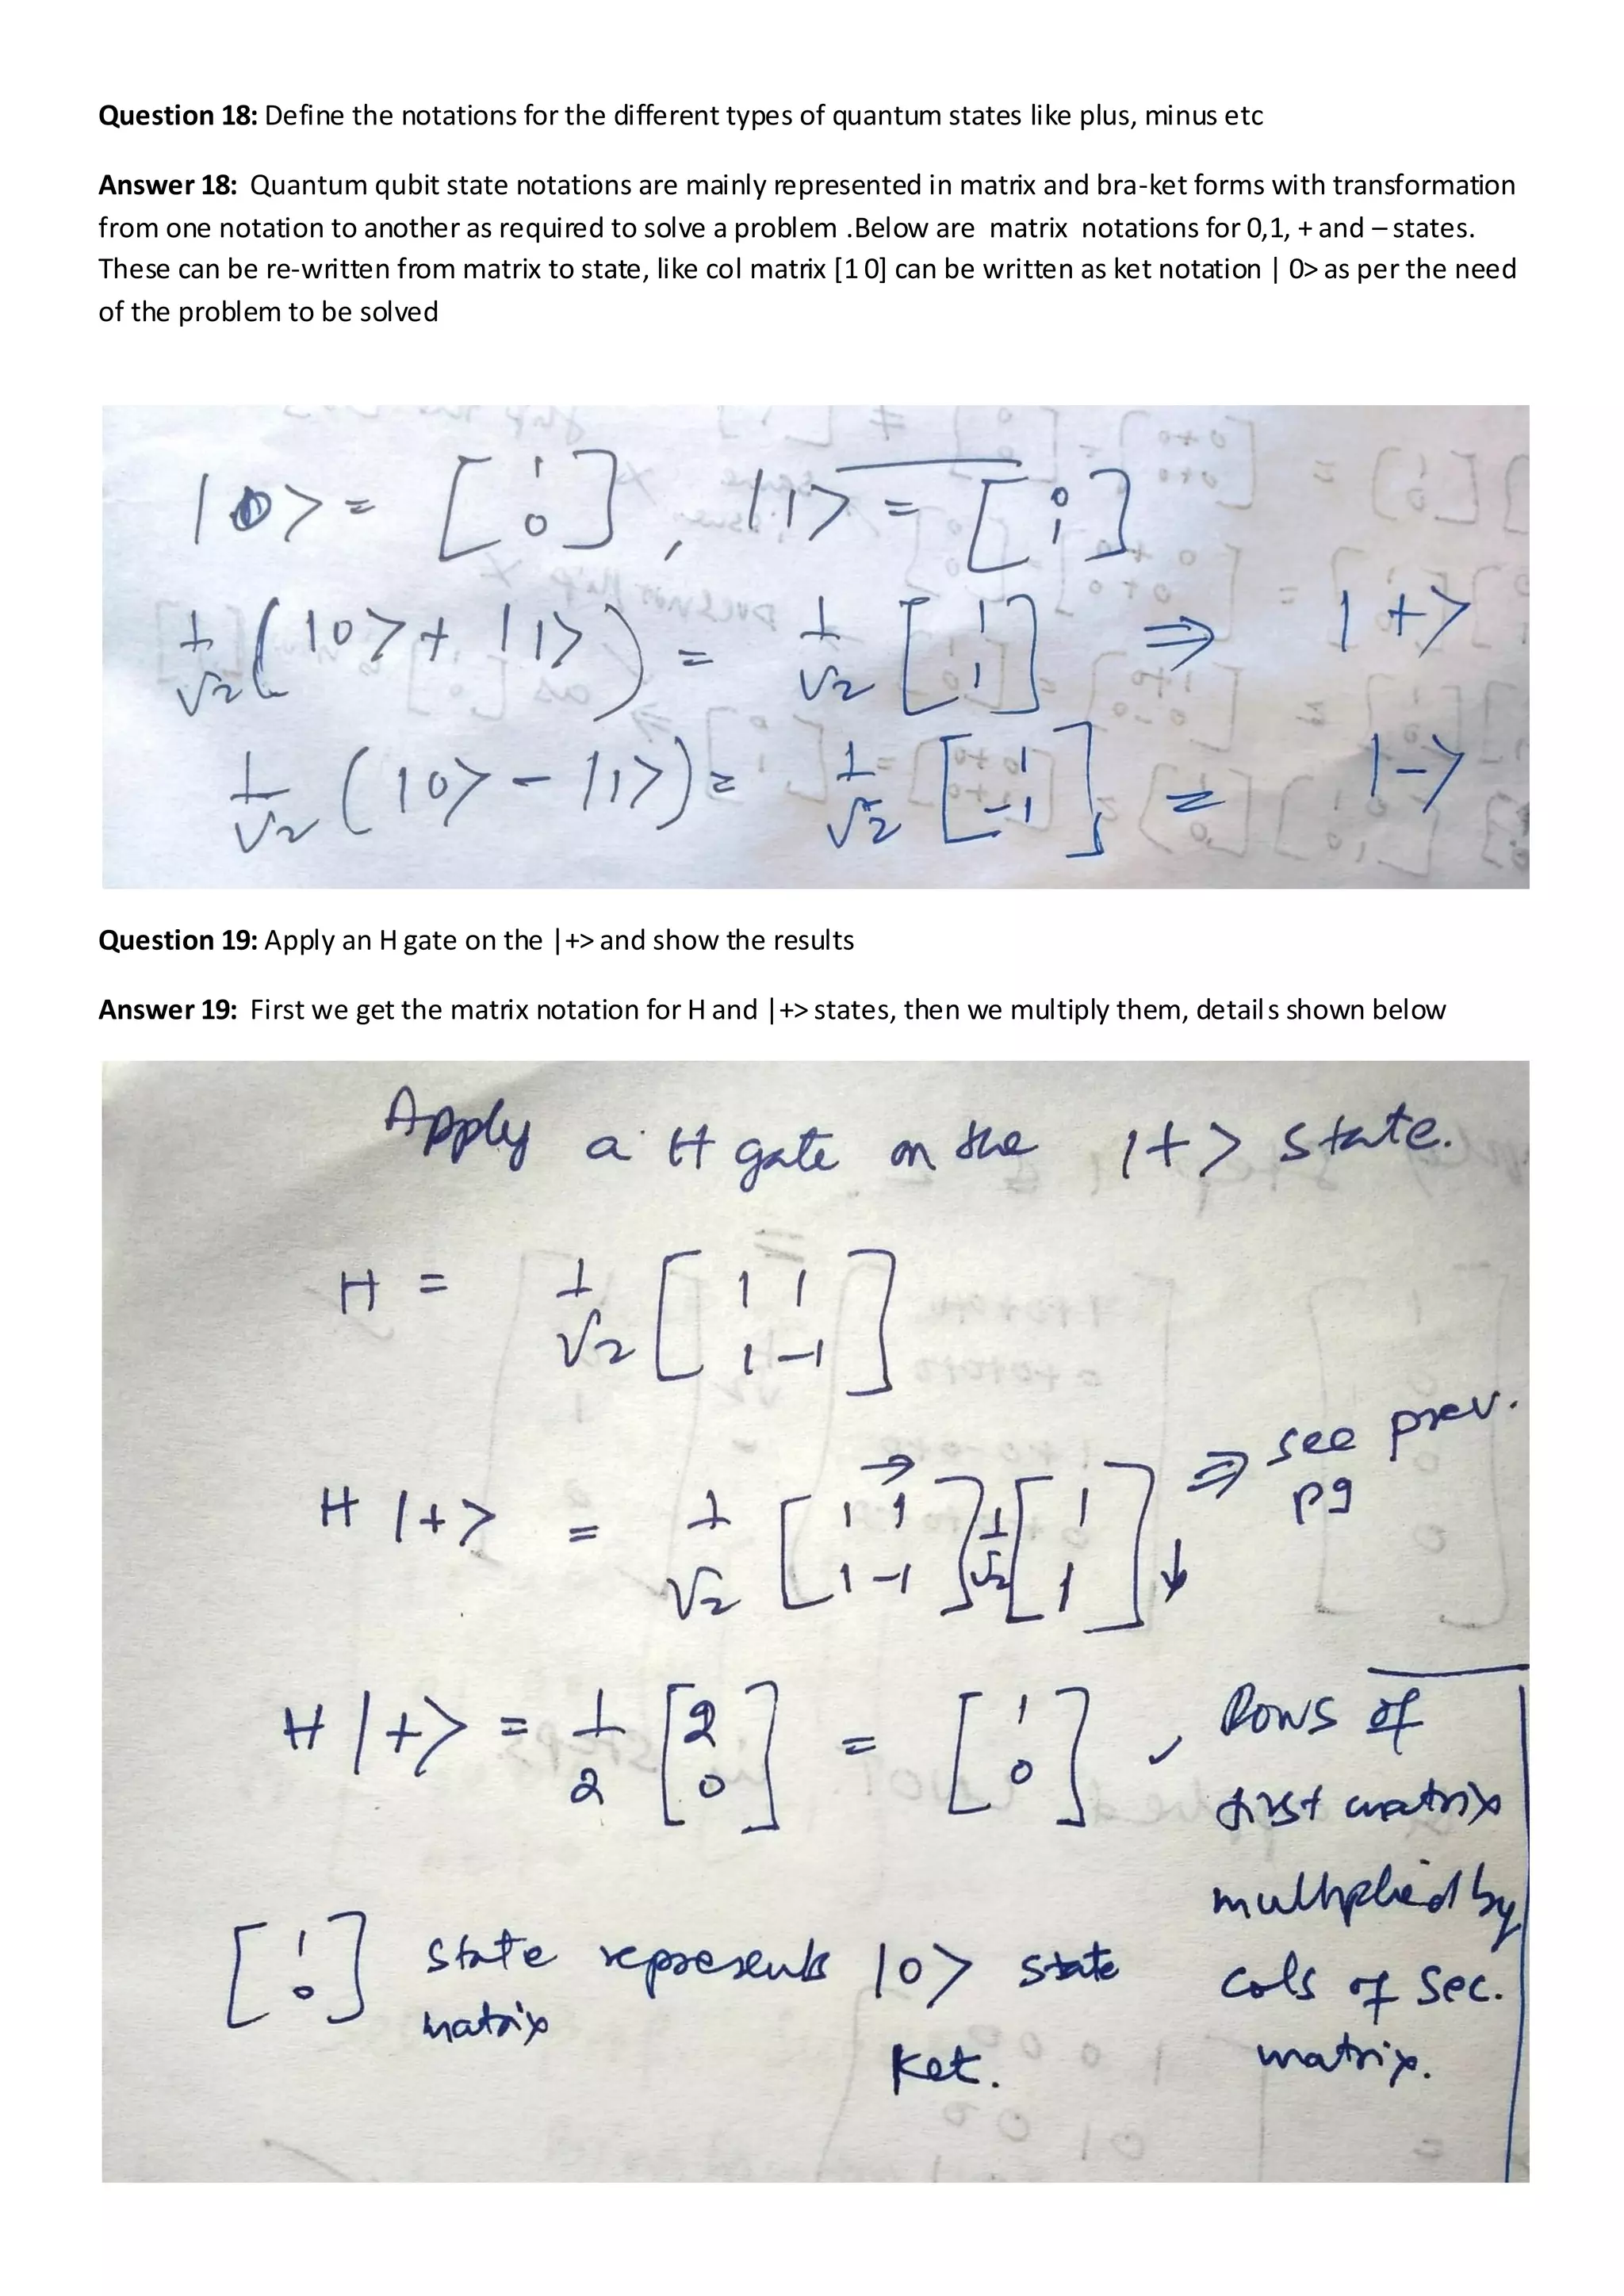 Question 18: Define the notations for the different types of quantum states like plus, minus etc
Answer 18: Quantum qubit state notations are mainly represented in matrix and bra-ket forms with transformation
from one notation to another as required to solve a problem .Below are matrix notations for 0,1, + and – states.
These can be re-written from matrix to state, like col matrix [1 0] can be written as ket notation | 0> as per the need
of the problem to be solved
|0> = [1 0], |1> = [0 1]
1/√2 (|0> + |1>) = 1/√2 [1 1] ⇒ |+>
1/√2 (|0> - |1>) = 1/√2 [1 -1] = |->
Question 19: Apply an H gate on the |+> and show the results
Answer 19: First we get the matrix notation for H and |+> states, then we multiply them, details shown below
Apply a H gate on the |+> state.
H = 1/√2 [1 1 1 -1]
H |+> = 1/√2 [1 1 1 -1] 1/√2 [1 1] ⇒ see prev.
pg
H |+> = 1/2 [2 0] = [1 0], Rows of
first matrix
multiplied by
cols of sec.
matrix.
[1 0] state represents |0> state
matrix
ket.